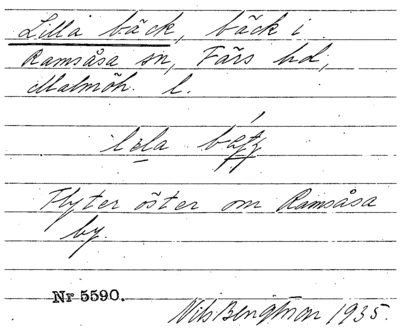 Lilla bäck, bäck i
Ramsåsa sn, Färs hd,
Malmöh. l.
lila
Flyter öster om Ramsåsa
by.
Nr 5590.
Nils Bengtsson 1935.